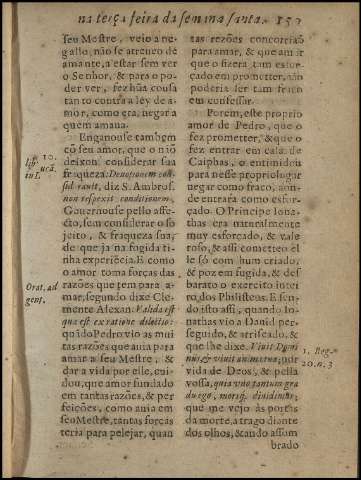 na terça feira da semana santa. 159
seu Mestre, veio a ne-
gallo, não se atreueo de
amante, a estar sem ver
o Senhor, & para o po-
der ver, fez hũa cousa
tanto contra a ley de a-
mor, como era, negar a
quem amaua.
Enganouse tambem
cõ seu amor, que o não
deixou considerar sua
fraqueza: Deuotionem con-
sulrauit, diz S. Ambros.
non respexit conditionem.
Gouernouse pello affe-
cto, sem considerar o so-
jeito, & fraqueza sua,
de que ja na fugida ti-
nha experiẽcia. E como
o amor toma forças das
razões que tem para a-
mar, segundo dixe Cle-
mente Alexan. Valida est
quæ est ex ratione dilectio:
quãdo Pedro vio as mui
tas razões que auia para
amar a seu Mestre, &
dar a vida por elle, cui-
dou, que amor fundado
em tantas razões, & per
feições, como auia em
seu Mestre, tantas forças
teria para pelejar, quan
lib. 10.
in L
Orat. ad
gent.
tas rezões concorrião
para amar, & que amor
que o fizera tam esfor-
çado em prometter, não
poderia ser tam fraco
em confessar.
Porem, esse proprio
amor de Pedro, que o
fez prometter, & que o
fez entrar em casa de
Caiphas, o entimidou
para nesse proprio lugar
negar como fraco, aon-
de entrara como esfor-
çado. O Principe Iona-
thas era naturalmente
muy esforçado, & vale
roso, & assi cometteo el
le só com hum criado,
& poz em fugida, & des
barato o exercito intei
ro dos Philisteos. E sen-
do isto assi, quando Io-
nathas vio a Dauid per-
seguido, & arriscado, &
que lhe dixe. Viuit Domi
nus, & viuit anima tua; por
vida de Deos, & pella
vossa, quia vno tantum gra
du ego, morsq; diuidimur;
que me vejo ás portas
da morte, a trago diante
dos olhos, & ando assom
brado
1. Reg.
20. n. 3